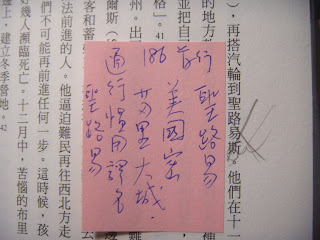 ），再搭汽輪到聖路易斯。他們在十一
的地方
並把自
格」。41
州。出
爾斯（
客和蓄
法前進的人。他逼迫難民再往西北方走
們不可能再前進任何一步。這時候，孩
好幾人瀕臨死亡。十二月中，苦惱的布里
邊上，建立冬季營地。42
186 行
聖路易
美國密
苏里大城.
通行慣用譯名
聖路易